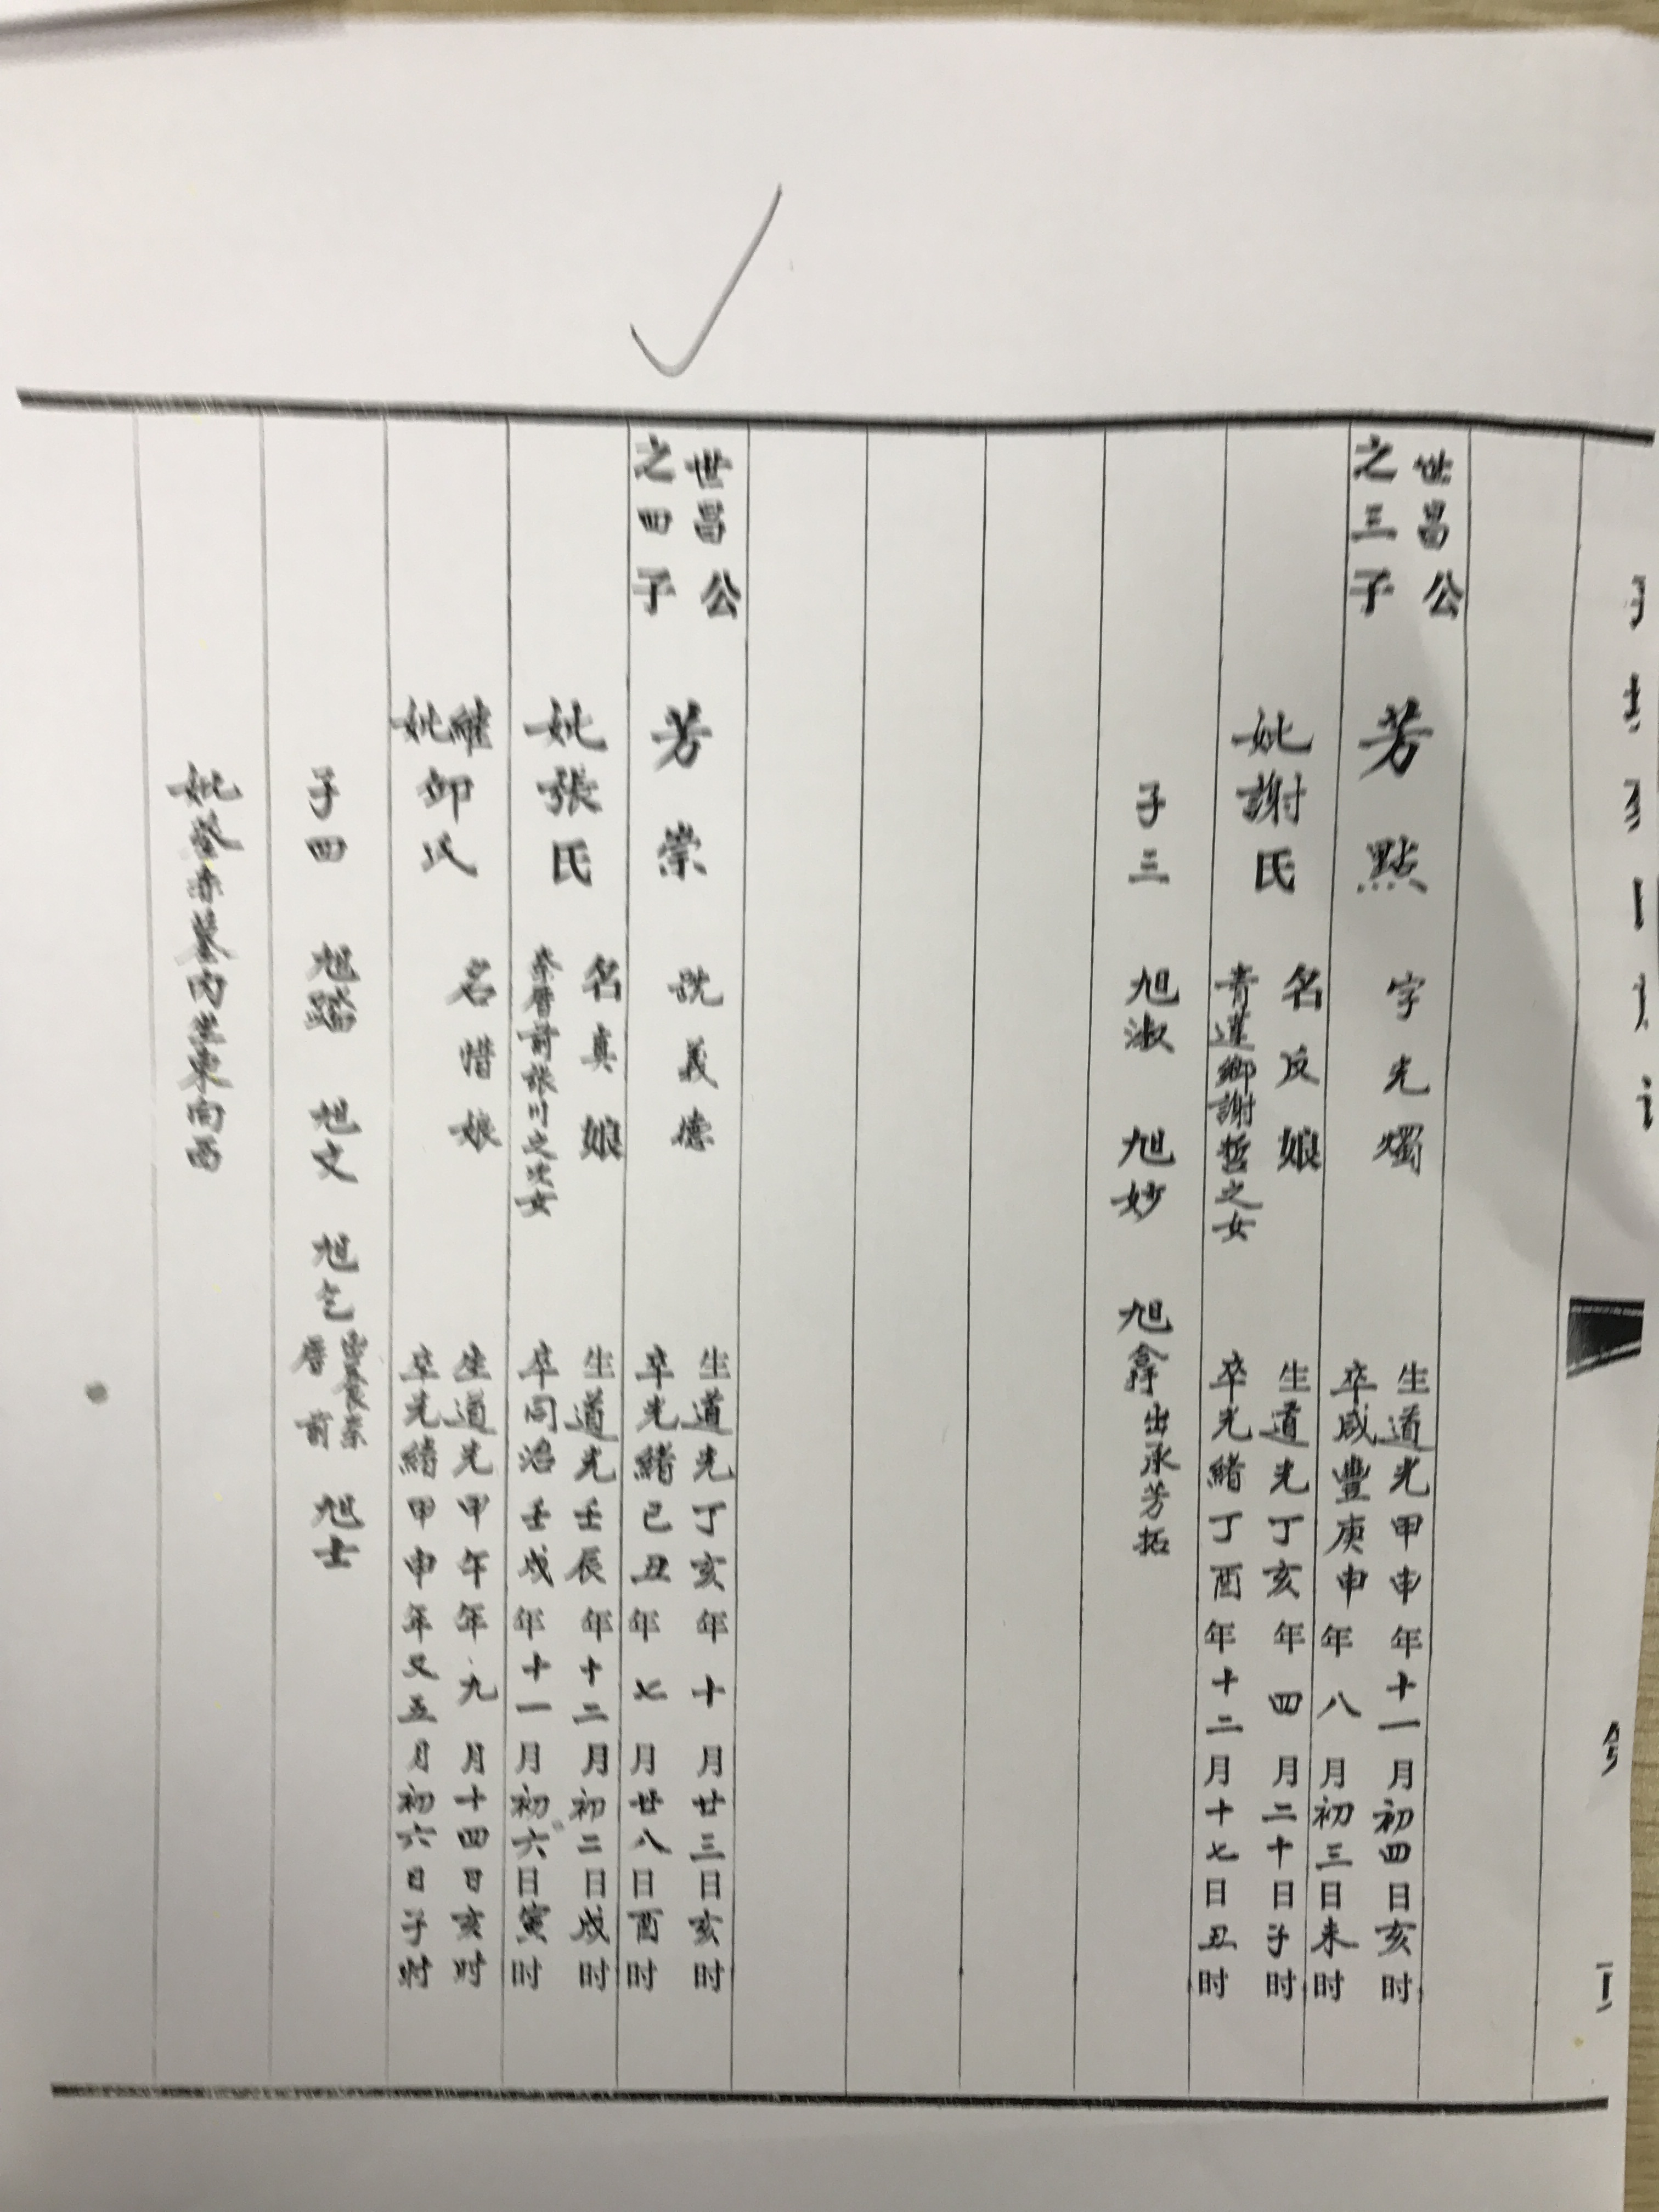 世昌公
之三子
芳點 字光燭
生道光甲申年十一月初四日亥时
卒咸豐庚申年八月初三日未时
妣謝氏
名反娘
青蓮鄉謝哲之女
生道光丁亥年四月二十日子时
卒光緒丁酉年十二月十七日丑时
子三 旭淑 旭妙 旭拿出承芳拓
世昌公
之四子
芳崇 諡義德
生道光丁亥年十月廿三日亥时
卒光緒己丑年七月廿八日酉时
妣張氏
名真娘
厝前張川之次女
生道光壬辰年十二月初二日戌时
卒同治壬戌年十一月初六日寅时
繼
妣
氏
名惜娘
生道光甲午年九月十四日亥时
卒光緒甲申年又五月初六日子时
子四 旭踏 旭文 旭乞
厝前
旭士
妣葬赤墓內坐東向西